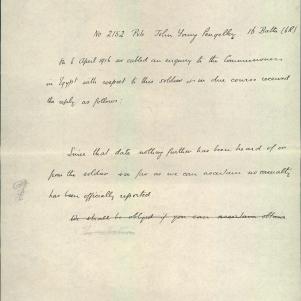 No 2152 Pte John Young Pengelly 16 Battn (6R)
On 6 April 1916 we cabled an enquiry to the Commissioners
in Egypt with respect to this soldier & in due course received
the reply as follows:
Since that date nothing further has been heard of or
from the soldier & so far as we can ascertain no casualty
has been officially reported
We shall be obliged if you can ascertain